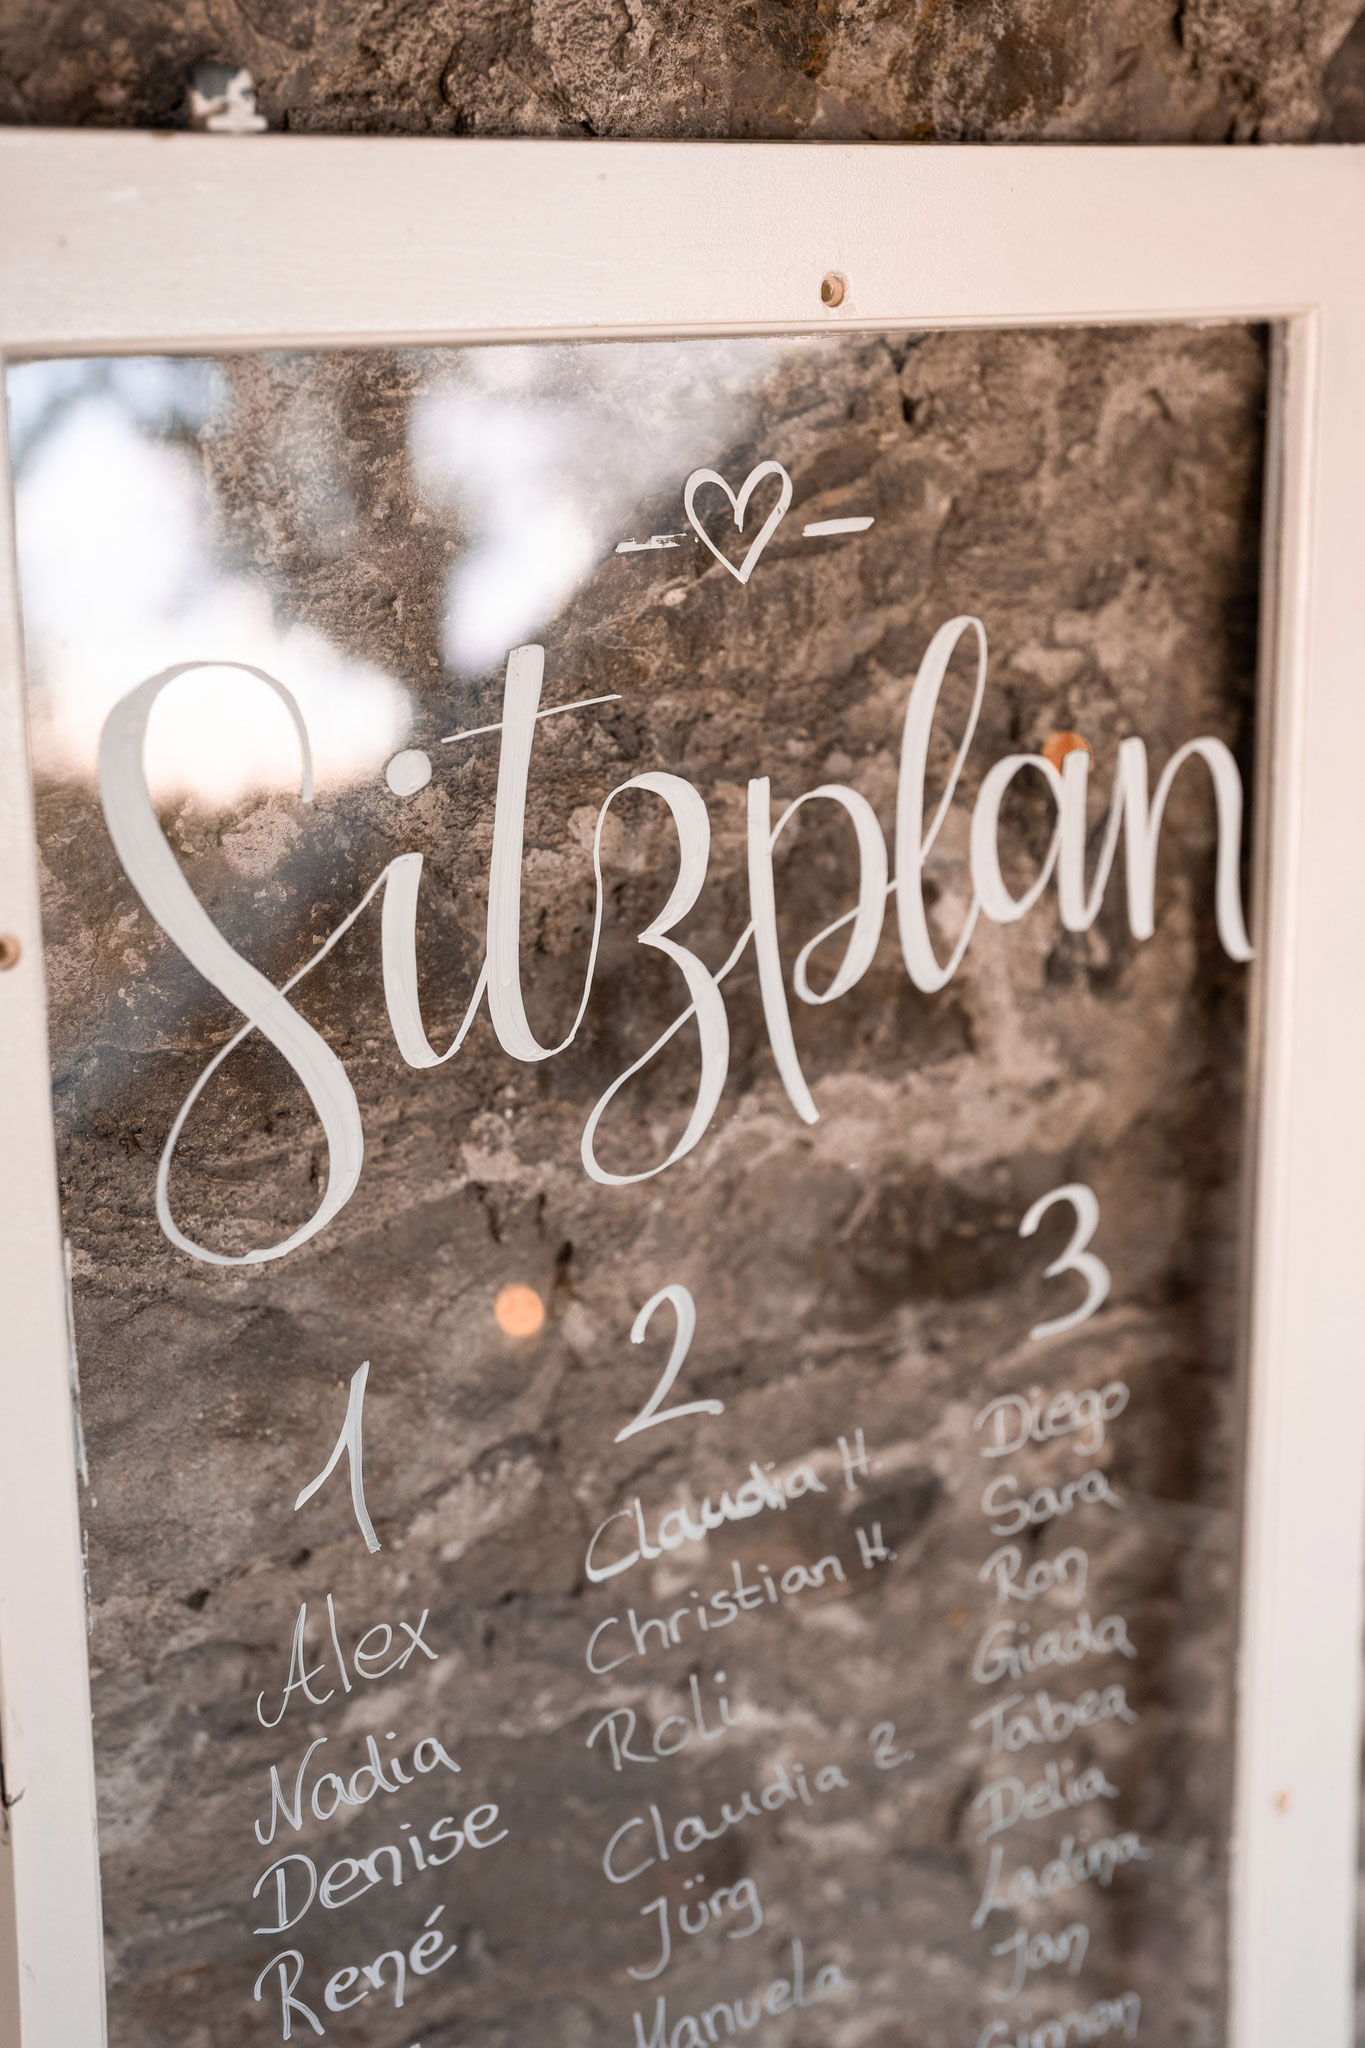 Sitzplan
1
Alex
Nadia
Denise
René
2
Claudia H.
Christian H.
Roli
Claudia Z.
Jürg
Manuela
3
Diego
Sara
Ron
Giada
Tabea
Delia
Ladina
Jan
Simon